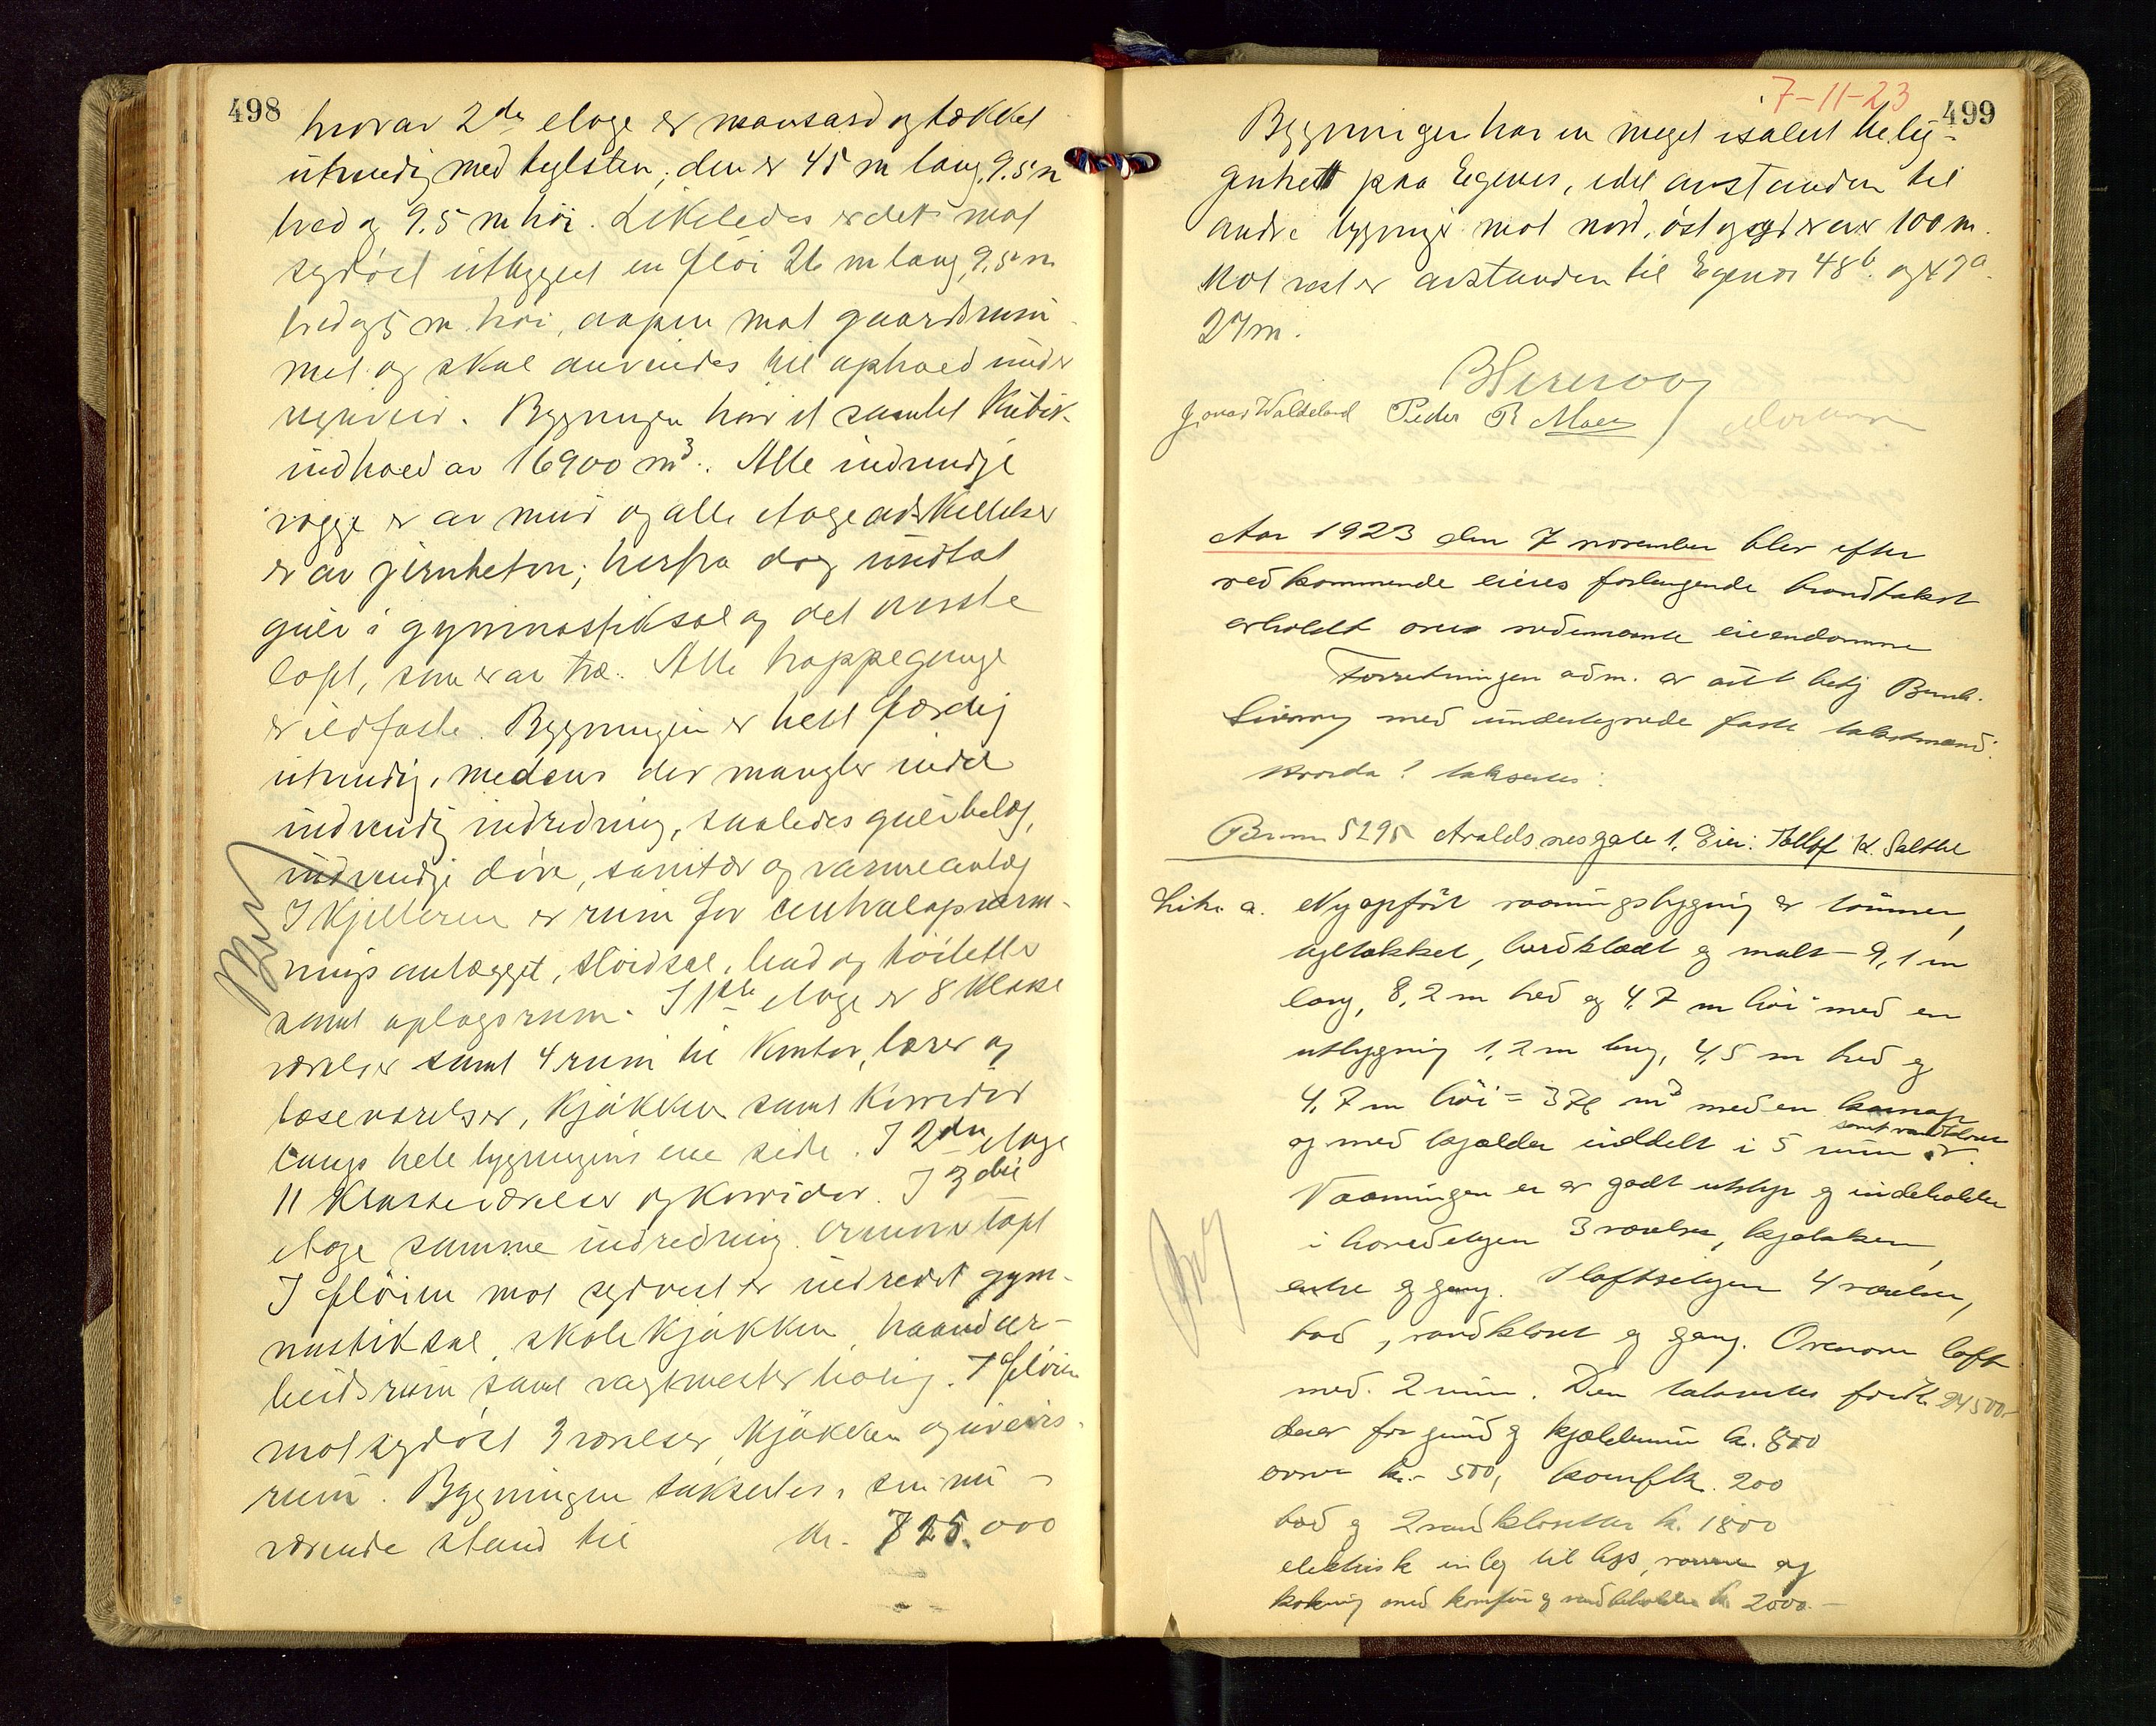 498
hvorav 2de etage er mansard og tækket
utvendig med teglsten; den er 45 m lang, 9.5 m
bred og 9.5 m høi. Likeledes er det mot
sydøst utbygget en fløi 26 m lang, 9,5 m
bred og 5 m høi, aapen mot gaardsrum
met og skal anvendes til ophold under
regnveir. Bygningen har et samlet Kubik-
indhold av 16900 m³. Alle indvendige
vægge er av mur og alle etageadskillelser
er av jernbeton; herfra dog undtat
gulv i gymnastiksal og det øverste
loft, som er av træ. Alle trappegange
er ildfaste. Bygningen er helt færdig
utvendig, medens der mangler endel
indvendig indredning, saaledes gulvbelæg,
indvendige døre, sanitær og varmeanlæg
I Kjelleren er rum for centralopvarm-
ningsanlægget, sløidsal, bad og toiletter
samt oplagsrum. I 1ste etage er 8 Klasse
værelser samt 4 rum til Kontor, lærer og
læseværelser, Kjøkken samt Korridor
langs hele bygningens ene side. I 2den etage
11 Klasseværelser og Korridor. I 3die
etage samme indredning. Ovenover loft
I fløien mot sydvest er indredet gym-
nastiksal, skolekjøkken, haandar-
beidsrum samt vagtmesterbolig. I fløien
mot sydøst 3 værelser, Kjøkken og uveirs-
rum. Bygningen takseres i sin nu-
værende stand til kr. 725.000
7-11-23
499
Bygningen har en meget isolert belig-
genhet paa Egenes, idet avstanden til
andre bygninger mot nord, øst og syd er over 100 m.
Mot vest er avstanden til Egenes 48b. og 47a.
27 m.
B Sirevaag
Jonas Waldeland Peder R Moen
Aar 1923 den 7 november blev efter
vedkommende eieres forlangende brandtakst
avholdt over nedennævnte eiendomme
Forretningen adm. av
Sirevaag med undertegnede faste takstmænd.
Hvorda! takseres:
Br.nr 5295 Avaldsnesgate 1. Eier: Tollef K. Salthe
Litr. a. Nyopført vaaningsbygning av tømmer,
tegltækket, bordklædt og malt - 9,1 m
lang, 8,2 m bred og 4,7 m høi med en
utbygning 1,2 m lang, 4,5 m bred og
4,7 m høi = 376 m³ med en karnap
og med kjælder inddelt i 5 rum samt vandkloset
Vaaningen er av godt utstyr og indeholder
i hovedetagen 3 værelser, kjøkken,
entre og gang. I loftsetagen 4 værelser,
bad, vandkloset og gang. Ovenover loft
med 2 rum. Den takseres for Kr. 24500.-
derav for grund og kjælderrum kr. 800
ovner kr. 500, komf kr. 200
bad og 2 vandklosetter kr. 1800
elektrisk indlæg til lys, varme og
kokning med komfur og vandbeholder kr 2000.-